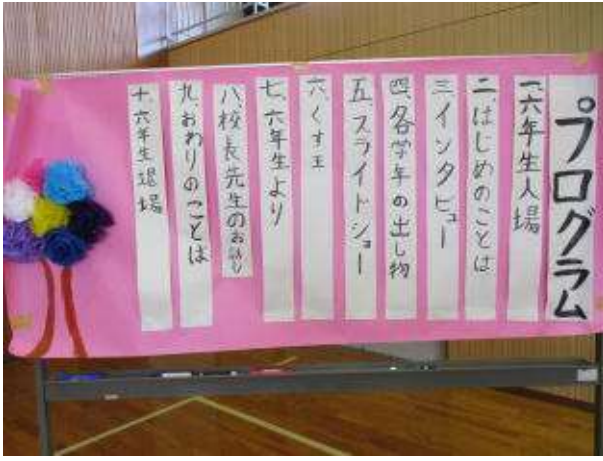 プログラム
一、六年生入場
二、はじめのことば
三、インタビュー
四、各学年の出し物
五、スライドショー
六、くす玉
七、六年生より
八、校長先生のお話し
九、おわりのことば
十、六年生退場